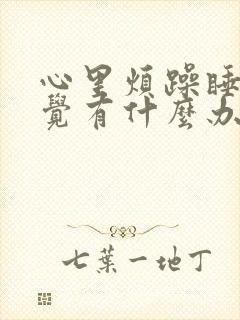 心里煩躁睡
覺有什麼办
七葉一地丁